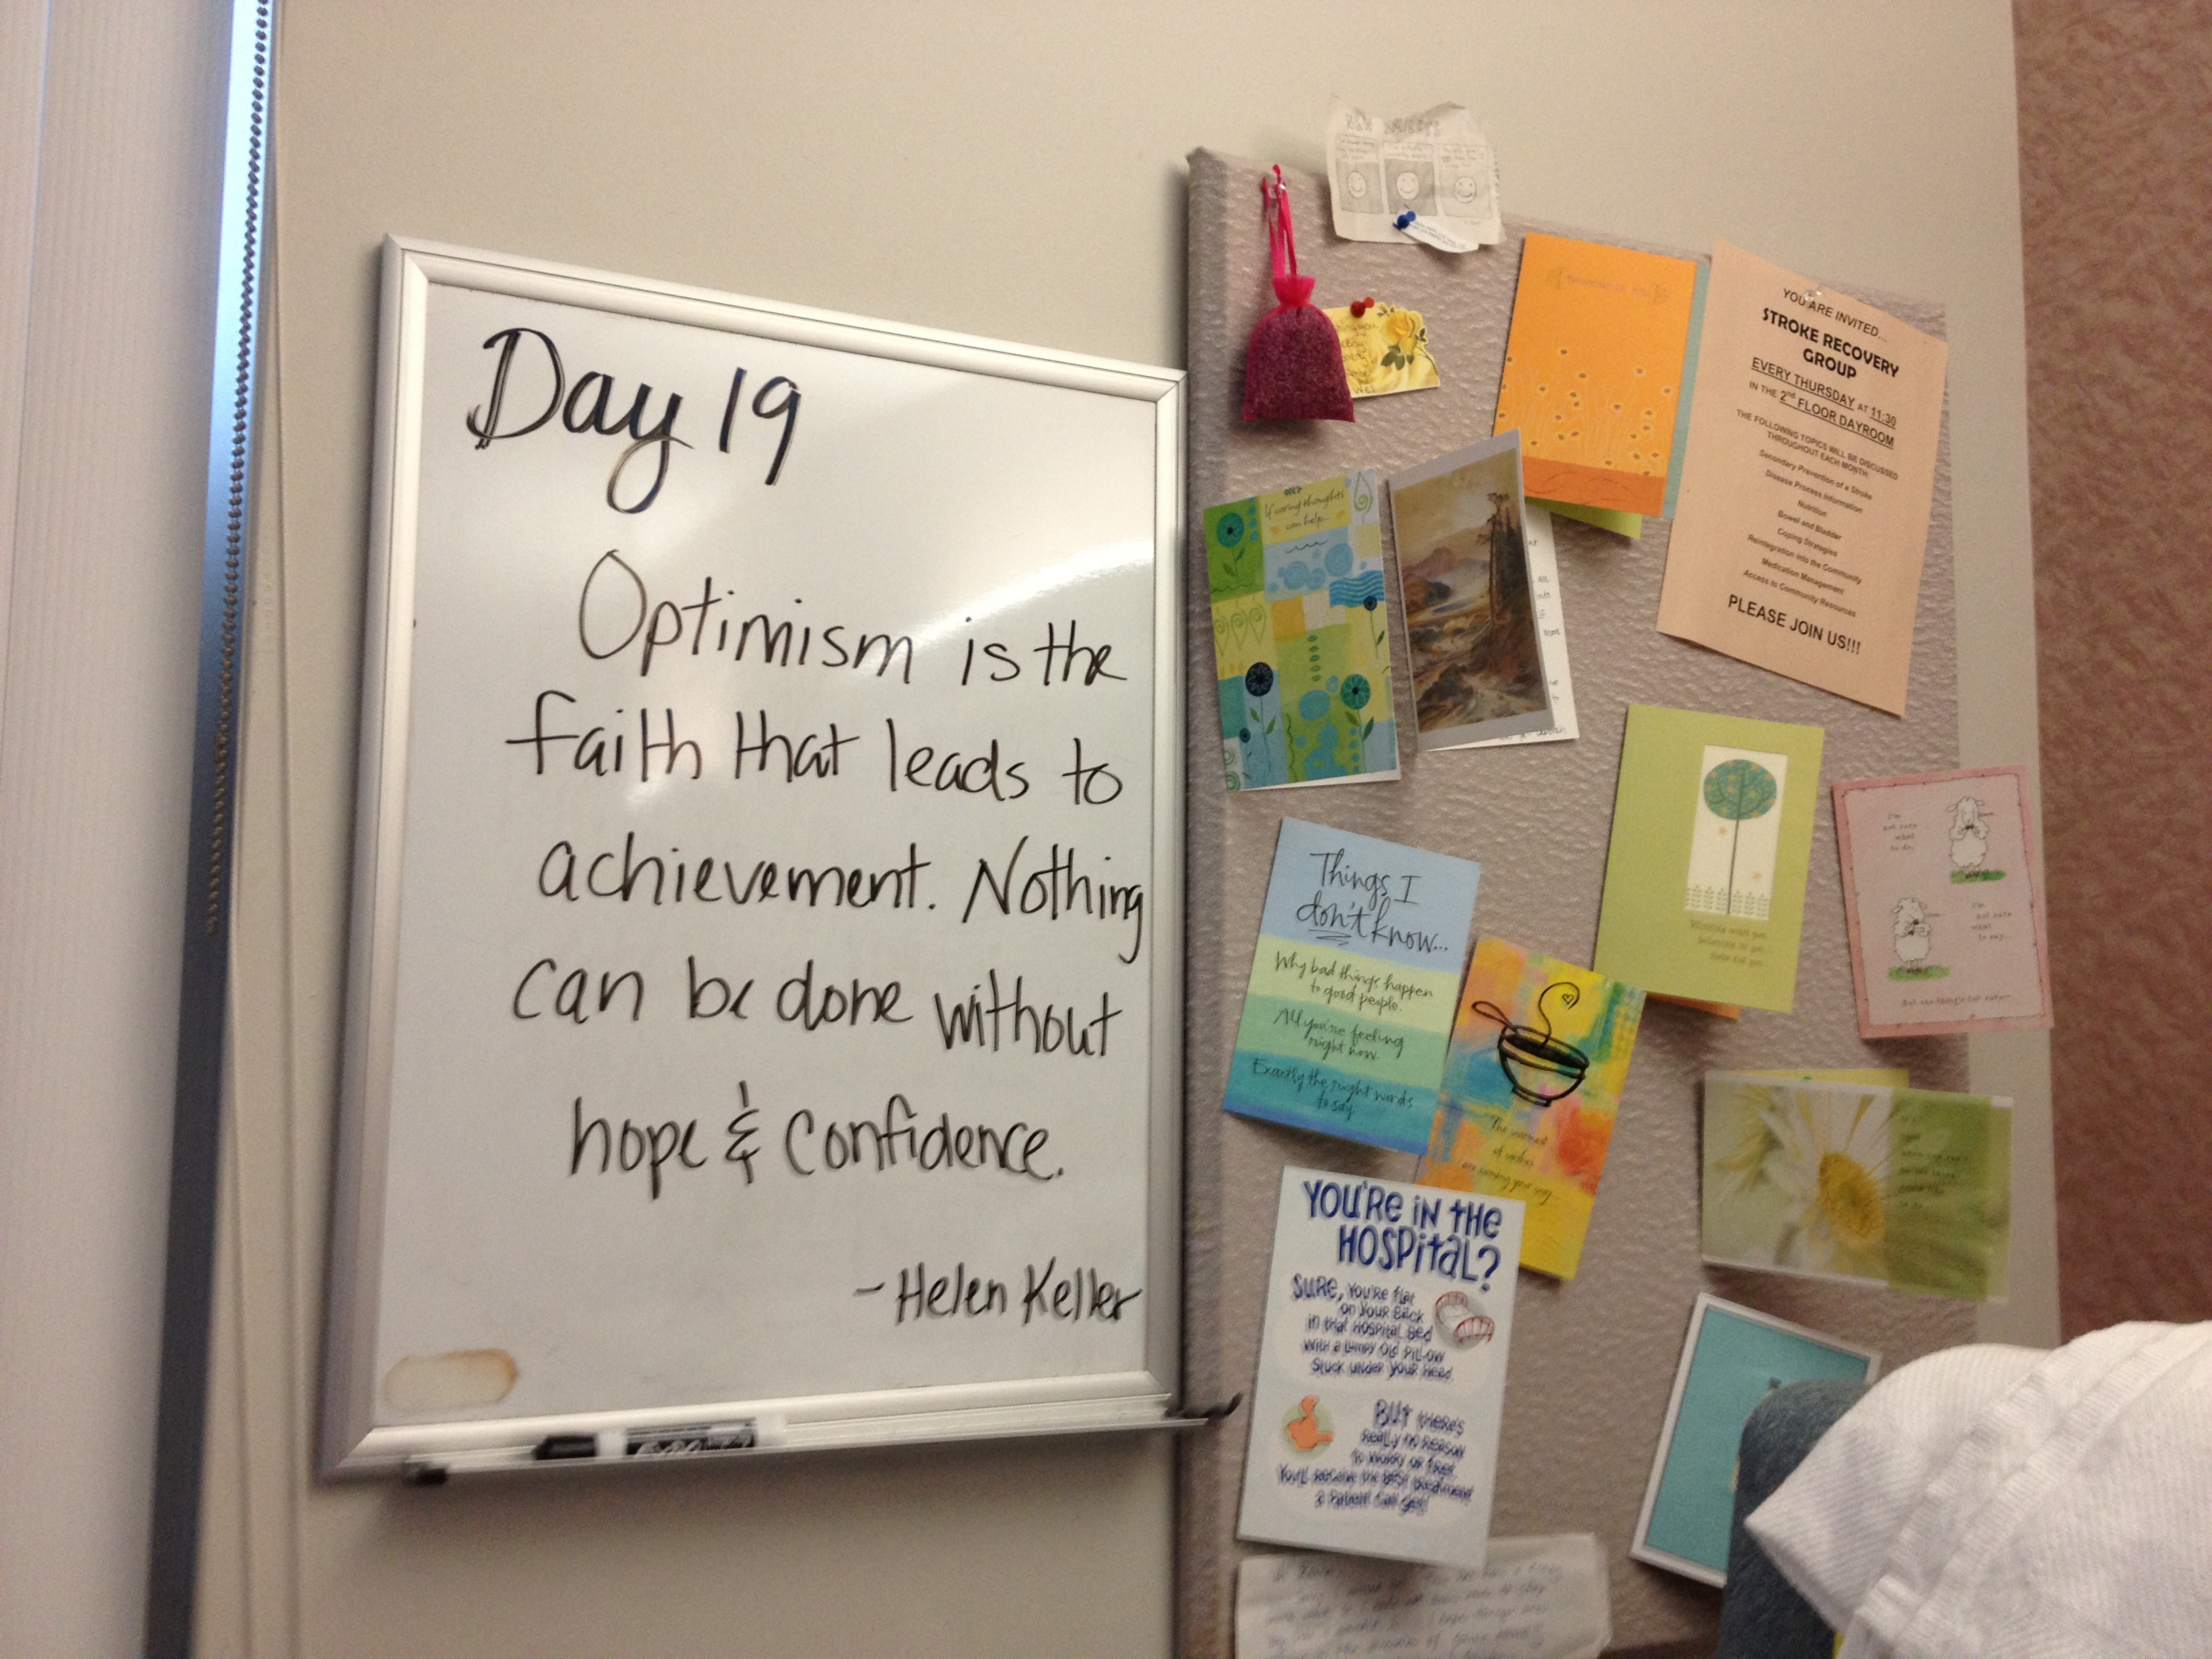 Day 19
Optimism is the
faith that leads to
achievement. Nothing
can be done without
hope & confidence.
- Helen Keller
YOU ARE INVITED...
STROKE RECOVERY
GROUP
EVERY THURSDAY AT 11:30
IN THE 2nd FLOOR DAYROOM
THE FOLLOWING TOPICS WILL BE DISCUSSED
THROUGHOUT EACH MONTH:
Secondary Prevention of a Stroke
Disease Process Information
Nutrition
Bowel and Bladder
Coping Strategies
Reintegration into the Community
Medication Management
Access to Community Resources
PLEASE JOIN US!!!
If caring thoughts
can help...
Things I
don't know...
Why bad things happen
to good people.
All you're feeling
right now.
Exactly the right words
to say.
I'm
not sure
what
to do,
I'm
not sure
what
to say...
The warmest
of wishes
are coming your way...
YOU'RE IN THE
HOSPITAL?
SURE, YOU'RE flat
on YOUR BACK
in that HOSPITAL BED
WITH a LUMPY OLD PILLOW
STUCK UNDER YOUR HEAD.
BUT THERE'S
REALLY NO REASON
to WORRY OR FRET.
YOU'LL RECEIVE the BEST treatment
a Patient can get!